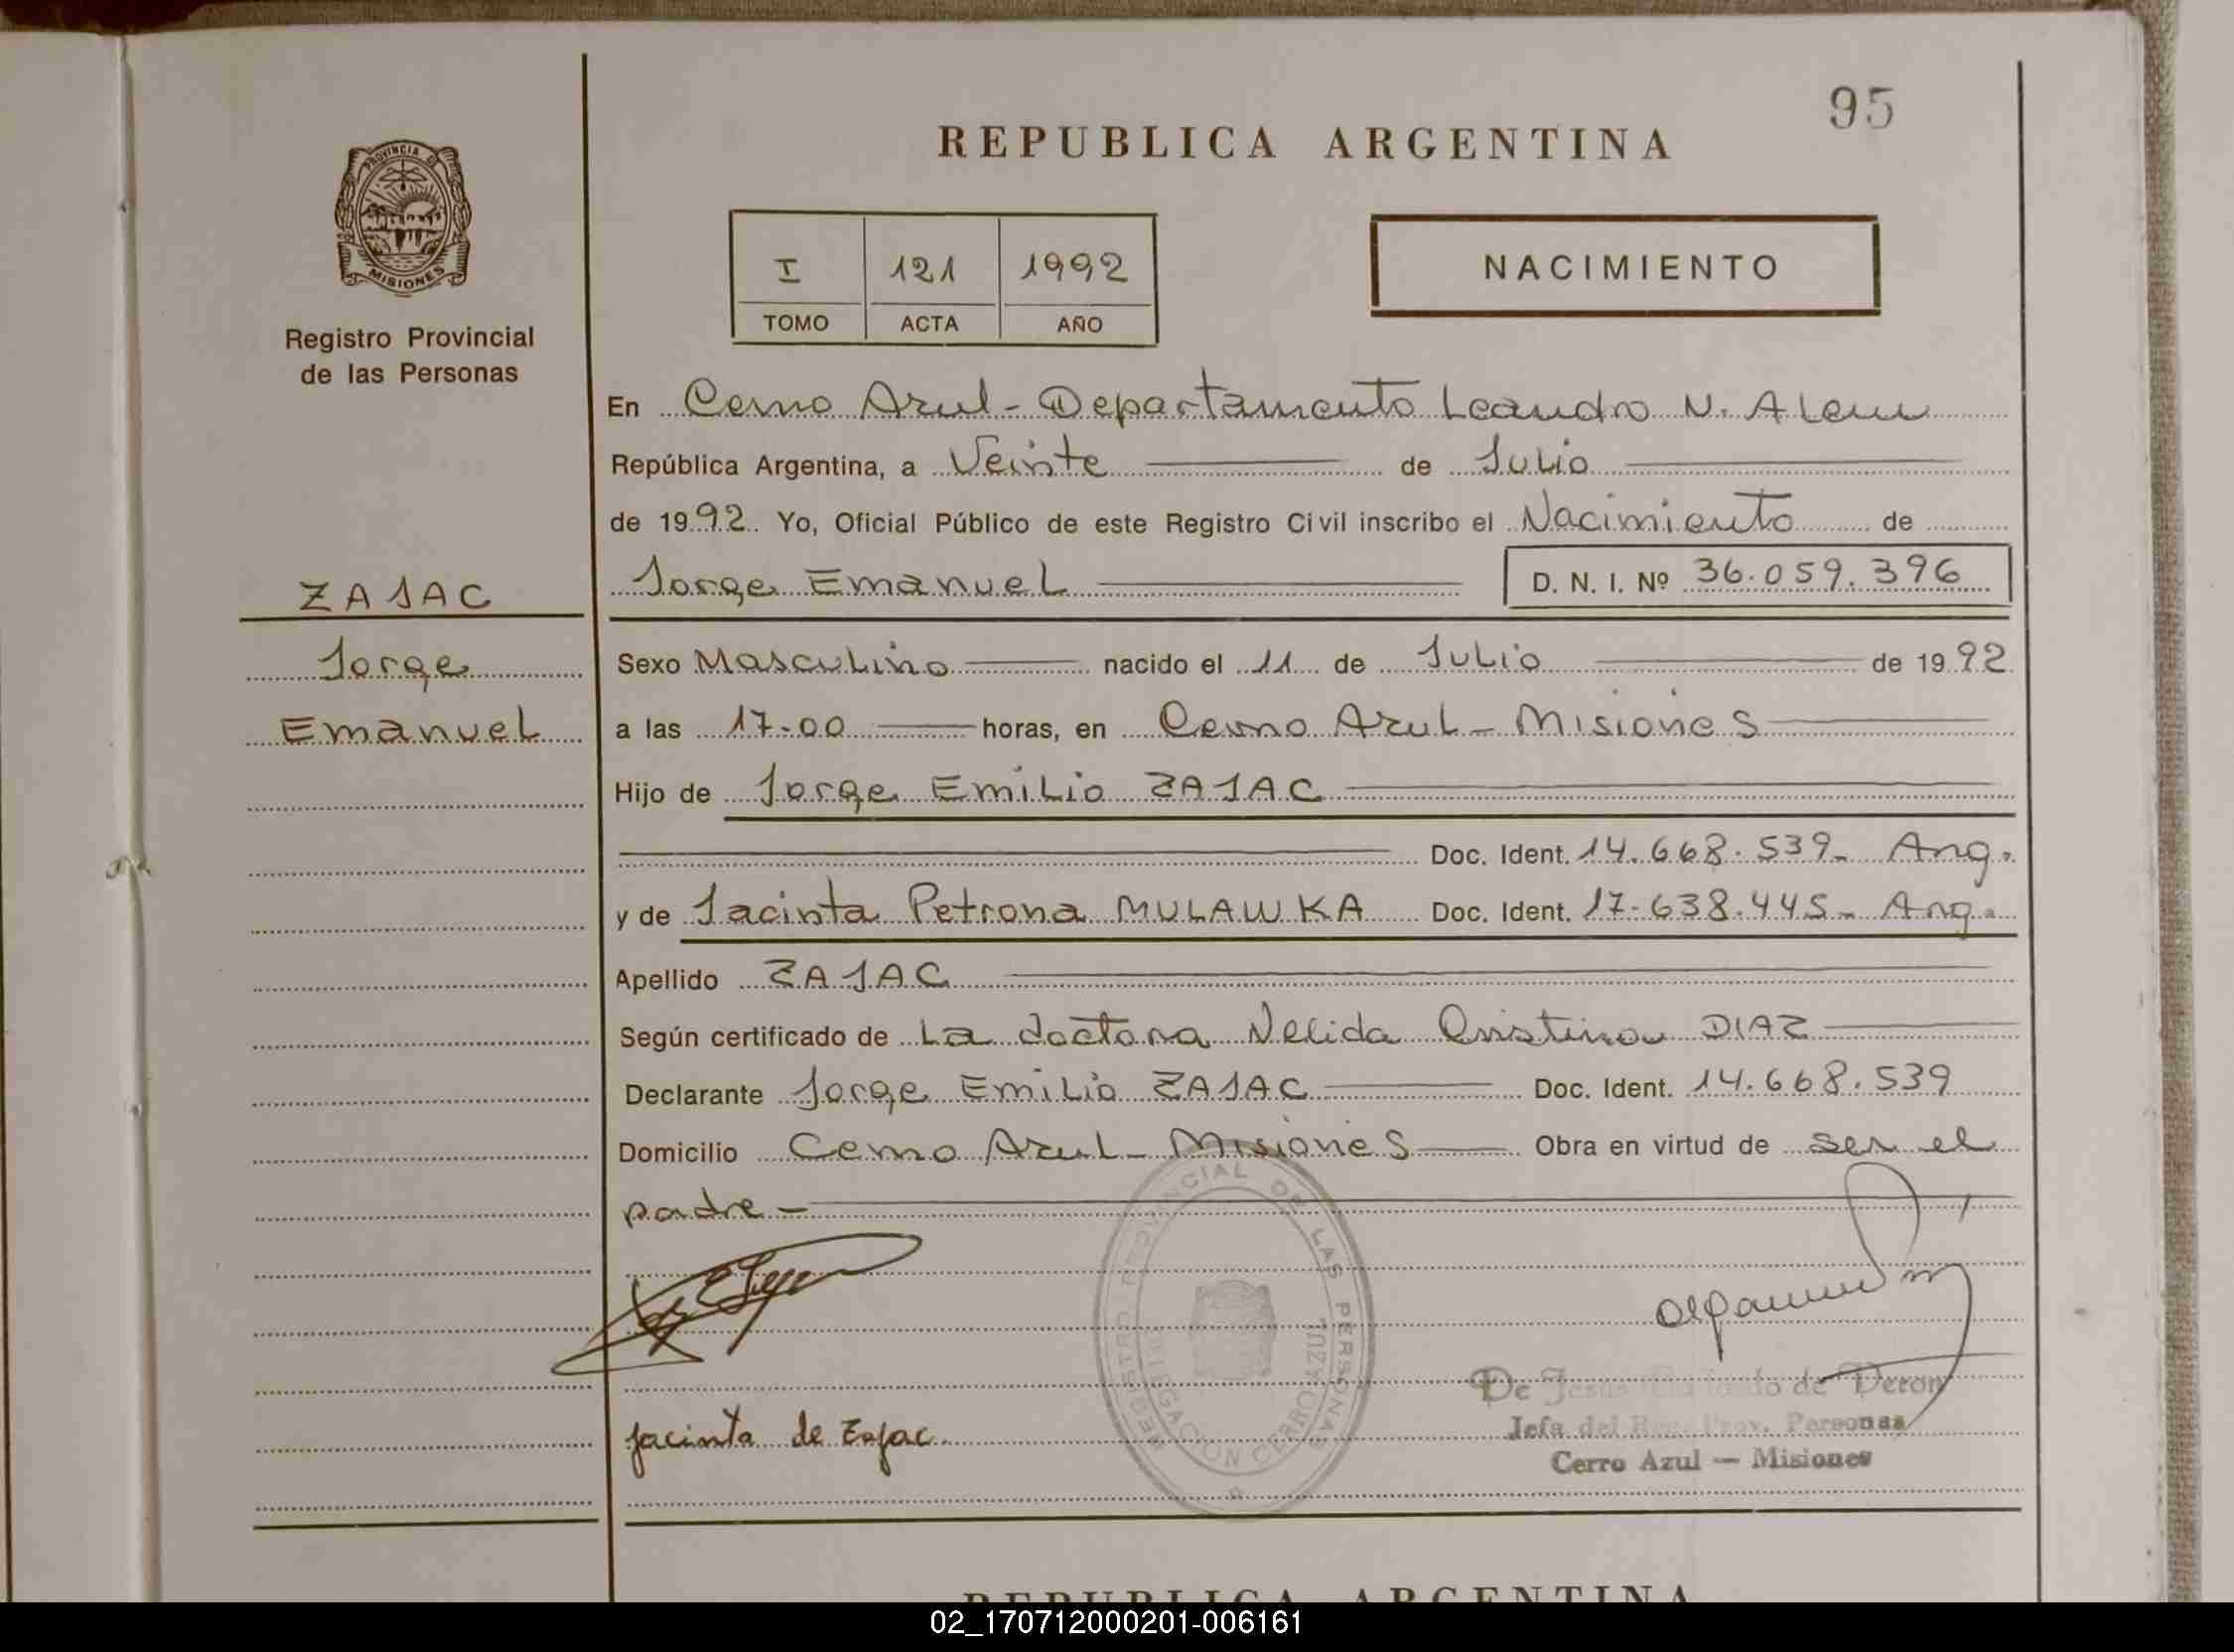 95
REPUBLICA ARGENTINA
PROVINCIA DE
MISIONES
Registro Provincial
de las Personas
I 121 1992
TOMO ACTA AÑO
NACIMIENTO
En Cerro Azul - Departamento Leandro N. Alem
República Argentina, a Veinte de Julio
de 1992. Yo, Oficial Público de este Registro Civil inscribo el Nacimiento de
Jorge Emanuel D. N. I. Nº 36.059.396
ZAJAC
Jorge
Emanuel
Sexo Masculino nacido el 11 de Julio de 1992
a las 17.00 horas, en Cerro Azul - Misiones
Hijo de Jorge Emilio ZAJAC
Doc. Ident. 14.668.539- Arg.
y de Jacinta Petrona MULAWKA Doc. Ident. 17.638.445- Arg.
Apellido ZAJAC
Según certificado de La doctora Nelida Cristina DIAZ
Declarante Jorge Emilio ZAJAC Doc. Ident. 14.668.539
Domicilio Cerro Azul - Misiones Obra en virtud de ser el
padre -
REGISTRO PROVINCIAL DE LAS PERSONAS
DELEGACION CERRO AZUL
De Jesus de Deron
Jefa del Reg. Prov. Personas
Cerro Azul — Misiones
Jacinta de Zajac.
REPUBLICA ARGENTINA
02_170712000201-006161